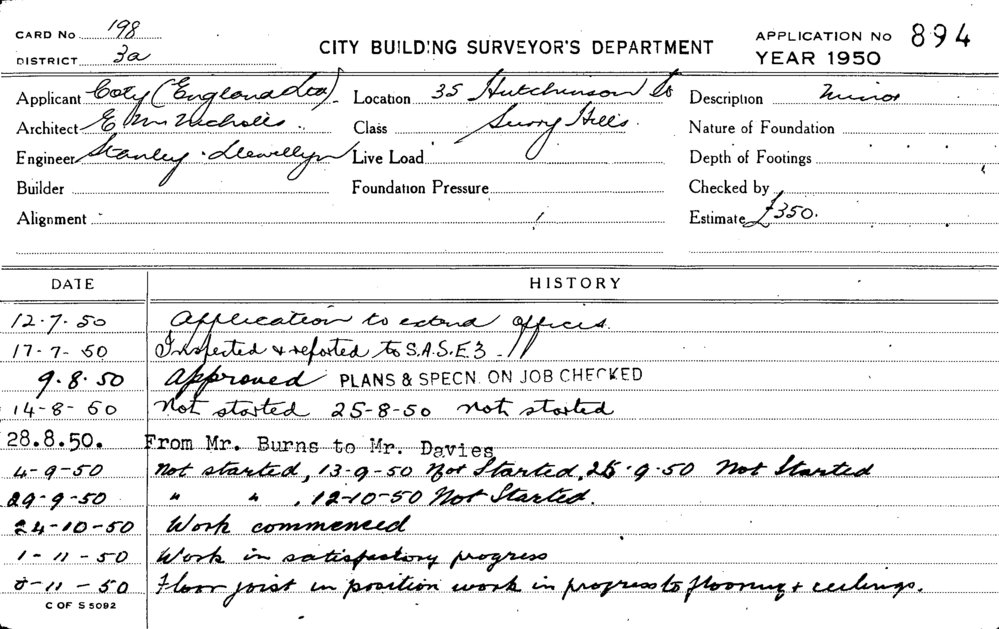 CARD No 198
DISTRICT 3a
CITY BUILDING SURVEYOR'S DEPARTMENT
APPLICATION No 894
YEAR 1950
Applicant Coty (England Ltd) Location 35 Hutchinson St Description Minor
Architect E. M. Nicholls Class Surry Hills Nature of Foundation
Engineer Stanley Llewellyn Live Load Depth of Footings
Builder Foundation Pressure Checked by
Alignment Estimate £350.
DATE HISTORY
12.7.50 Application to extend offices.
17-7-50 Inspected & reported to S.A.S.E3
9.8.50 Approved PLANS & SPECN. ON JOB CHECKED
14-8-50 Not started 25-8-50 not started
28.8.50. From Mr. Burns to Mr. Davies
4-9-50 Not started, 13-9-50 Not Started, 25.9.50 Not Started
29-9-50 " " , 12-10-50 Not Started.
24-10-50 Work commenced
1-11-50 Work in satisfactory progress
-11-50 Floor joist in position work in progress to flooring & ceilings.
C OF S 5092